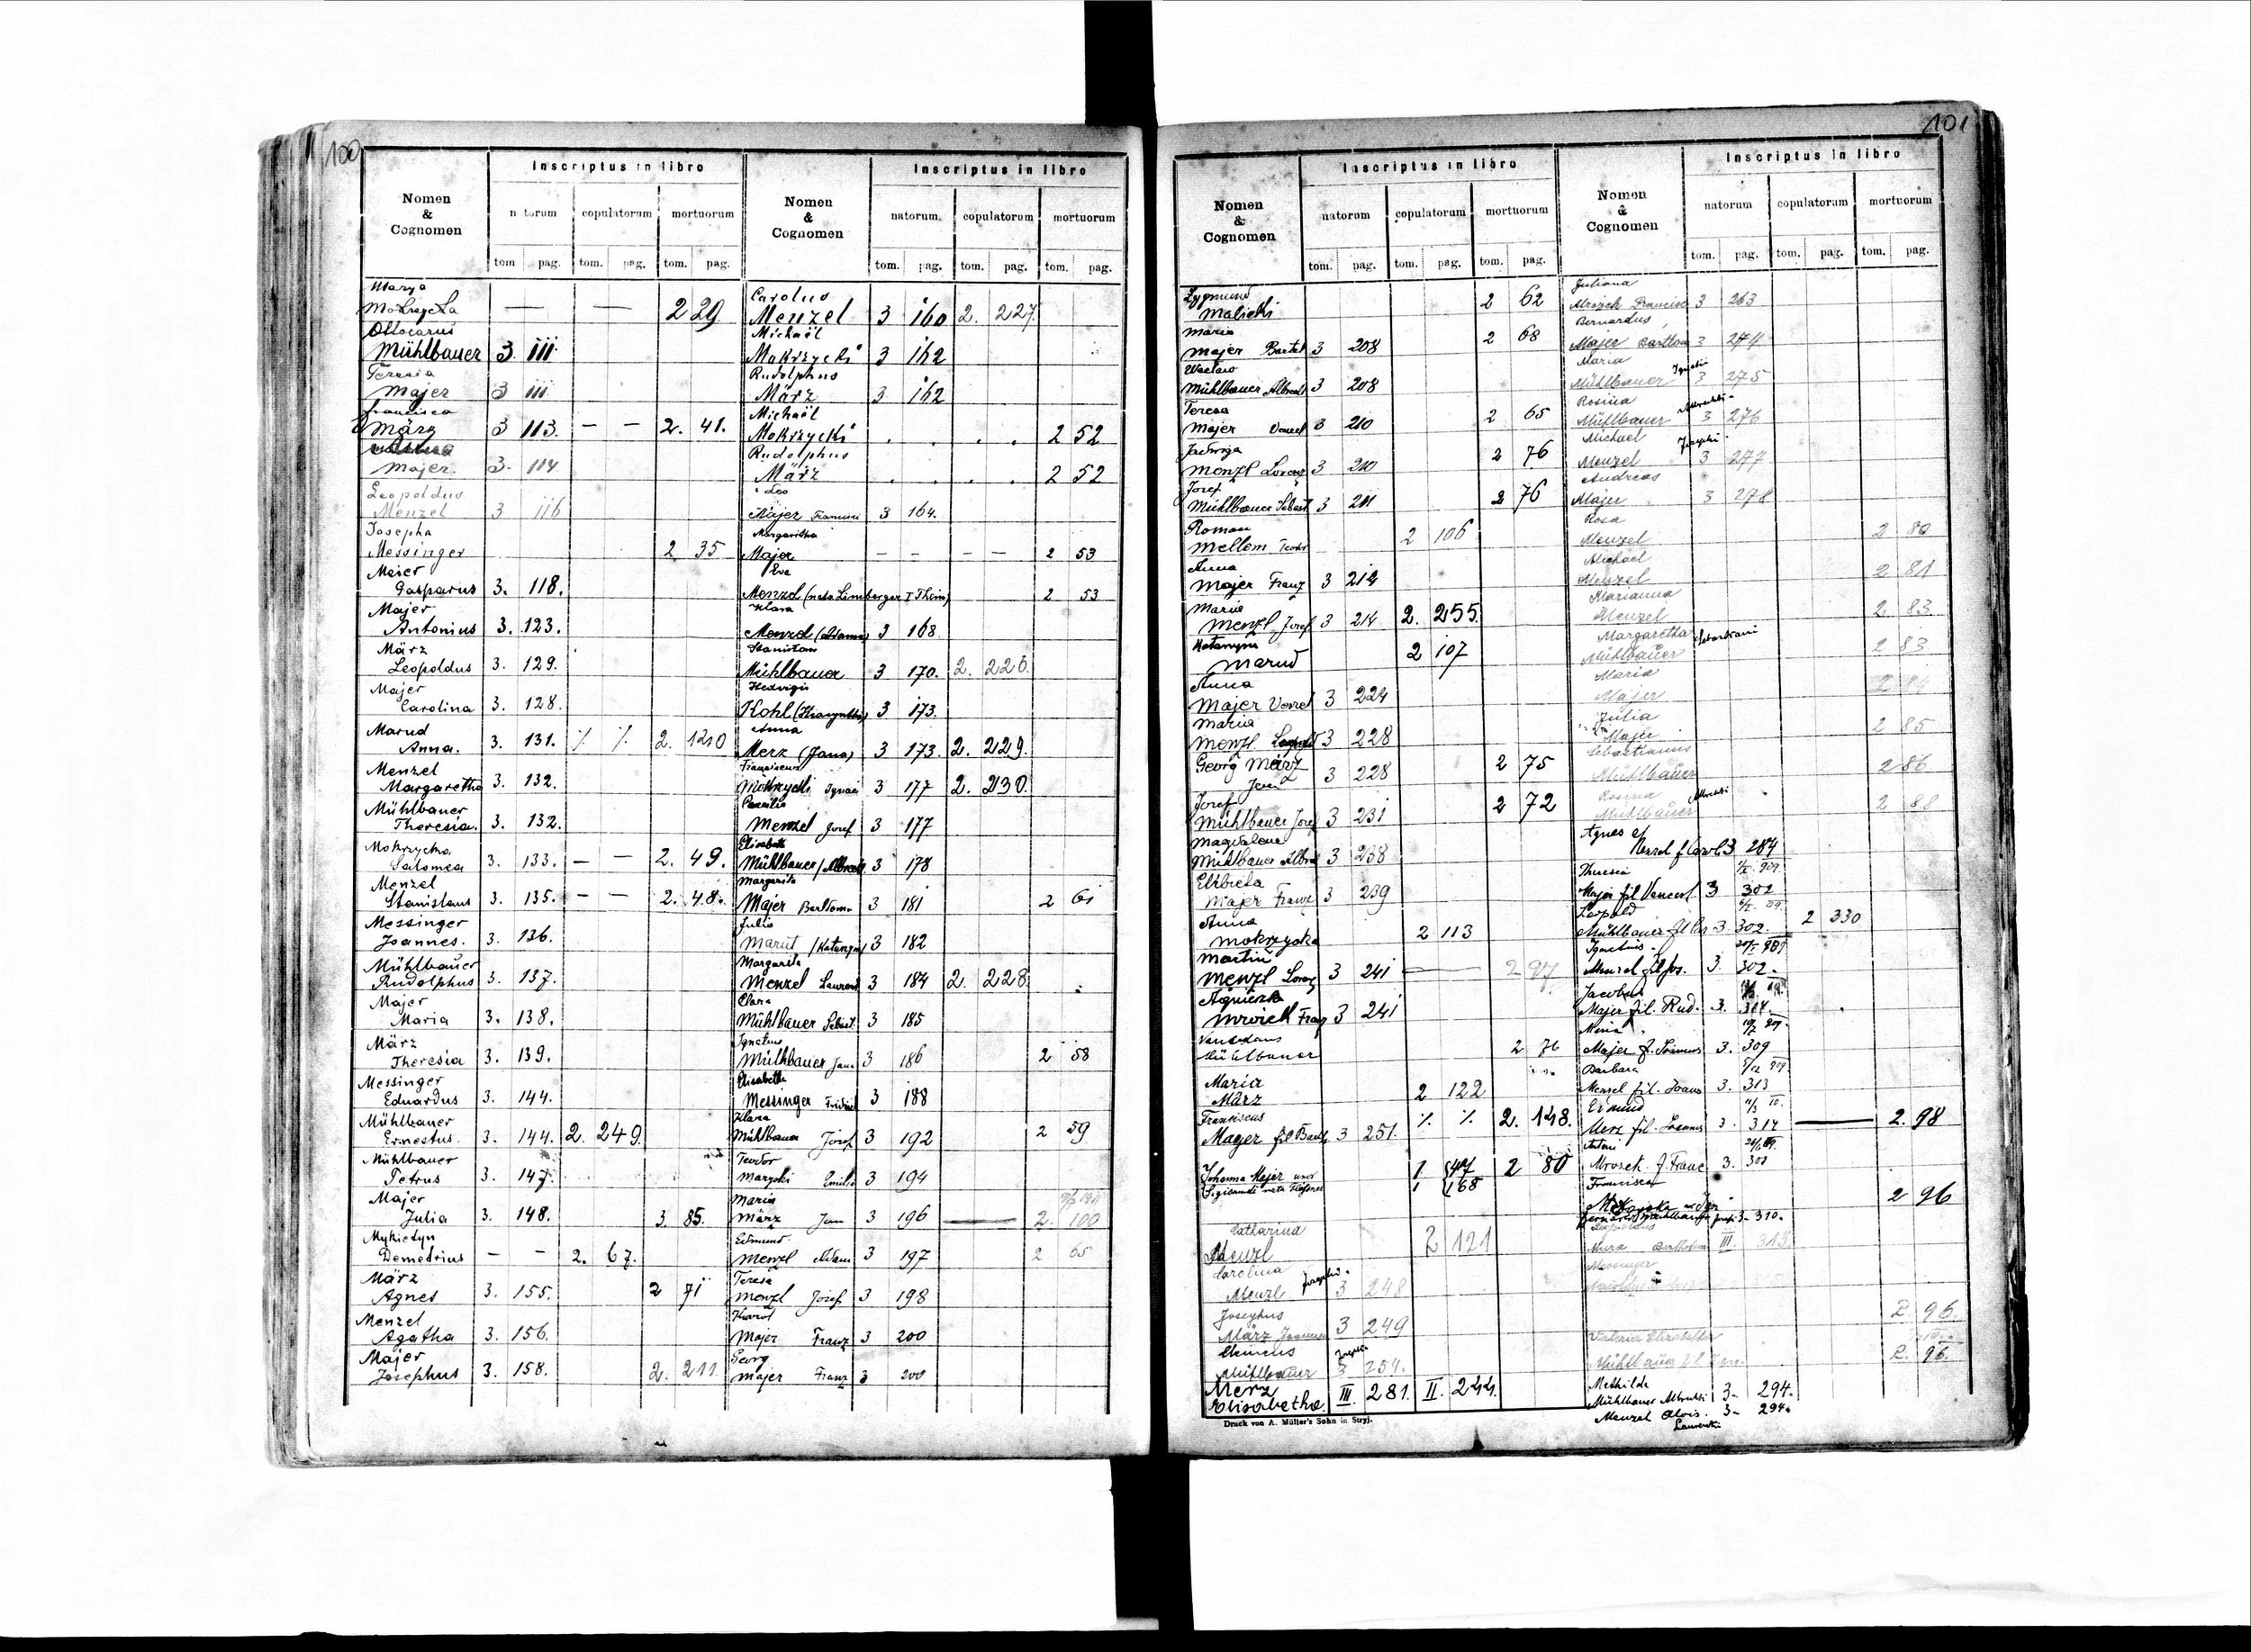 100
Nomen & Cognomen
Inscriptus in libro
natorum copulatorum mortuorum
tom pag. tom. pag. tom. pag.
Marya
Mokrzycka — — 2 29
Ottocarus
Mühlbauer 3 111
Teresia
Majer 3 111
Francisca
März 3 113. — — 2. 41.
Majer 3. 114
Leopoldus
Menzel 3 116
Josepha
Messinger 2 35
Meier
Gasparus 3. 118.
Majer
Antonius 3. 123.
März
Leopoldus 3. 129.
Majer
Carolina 3. 128.
Marud
Anna. 3. 131. % % 2. 120
Menzel
Margaretha 3. 132.
Mühlbauer
Theresia. 3. 132.
Mokrzycka
Salomea 3. 133. — — 2. 49.
Menzel
Stanislaus 3. 135. — — 2. 48.
Messinger
Joannes. 3. 136.
Mühlbauer
Rudolphus 3. 137.
Majer
Maria 3. 138.
März
Theresia 3. 139.
Messinger
Eduardus 3. 144.
Mühlbauer
Ernestus. 3. 144. 2. 249.
Mühlbauer
Petrus 3. 147.
Majer
Julia 3. 148. 3. 85.
Mykietyn
Demetrius — — 2. 67.
März
Agnes 3. 155. 2 71
Menzel
Agatha 3. 156.
Majer
Josephus 3. 158. 2. 211.
Nomen & Cognomen
Inscriptus in libro
natorum. copulatorum mortuorum
tom. pag. tom. pag. tom. pag.
Carolus
Menzel 3 160 2. 227.
Michaël
Mokrzycki 3 162
Rudolphus
März 3 162
Michaël
Mokrzycki . . . . 2 52
Rudolphus
März . . . . 2 52
Leo
Majer Francisci 3 164.
Margaritha
Majer — — — — 2 53
Eva
Menzel (nata Limberger I Thim) 2 53
Klara
Menzel (Adama) 3 168.
Stanislaus
Mühlbauer 3 170. 2. 226.
Hedvigis
Kohl 3 173.
Anna
Merz (Jana) 3 173. 2. 229.
Franciscus
Mokrzycki Ignaci 3 177 2. 230.
Menzel Josef 3 177
Elisabeth
Mühlbauer /Albrecht 3 178
Margarita
Majer Bartlom. 3 181 2 61
Julia
Marut /Katarzyna/ 3 182
Margarita
Menzel Laurent 3 184 2. 228.
Clara
Mühlbauer Sebast. 3 185
Ignatius
Mühlbauer Jana 3 186 2 58
Elisabetha
Messinger 3 188
Klara
Mühlbauer Josef 3 192 2 59
Teodor
Marycki Emilia 3 194
Maria
März Jan 3 196 — 2. 100
Edmund
Menzl Adam 3 197 2 65
Teresa
Menzl Josef 3 198
Karol
Majer Franz 3 200
Georg
Majer Franz 3 200
101
Nomen & Cognomen
Inscriptus in libro
natorum copulatorum mortuorum
tom. pag. tom. pag. tom. pag.
Zygmund
Malicki 2 62
Maria
Majer Bartel 3 208 2 68
Wacław
Mühlbauer Albrecht 3 208
Teresa
Majer Venzel 3 210 2 65
Jadwiga
Menzl Lorenz 3 210 2 76
Josef
Mühlbauer Sebast 3 211 2 76
Roman
Mellem 2 106
Anna
Majer Franz 3 212
Maria
Menzl Josef 3 214 2. 255.
Katarzyna
Marud 2 107
Anna
Majer Venzel 3 224
Maria
Menzl Leopold 3 228
Georg März
Jan 3 228 2 75
Josef
Mühlbauer Josef 3 231 2 72
Magdalena
Mühlbauer Albrecht 3 238
Elżbieta
Majer Franz 3 239
Anna
Mokrzycka 2 113
Martin
Menzl Lorenz 3 241 — 2 97
Agnieszka
Mrozek Franz 3 241
Venceslaus
Mühlbauer 2 76
Maria
März 2 122
Franciscus
Mayer fil Barth 3 251. % % 2. 148.
Johanna Majer uxor 1 47 2 80
Sigismundi nata 1 168
Catharina
Menzl 2 121
Carolina
Menzl Josephi 3 248
Josephus
März Joannes 3 249
Mühlbauer 3 254.
Merz
Elisabetha. III 281. II. 244.
Druck von A. Müller's Sohn in Stryj.
Nomen & Cognomen
Inscriptus in libro
natorum copulatorum mortuorum
tom. pag. tom. pag. tom. pag.
Juliana
Mrozek Francisci 3 263
Bernardus
Majer Bartlom 3 274
Maria
Mühlbauer Ignatii 3 275
Rosina
Mühlbauer Albrechti 3 276
Michael
Menzel Josephi 3 277
Andreas
Majer 3 278
Rosa
Menzel 2 80
Michael
Menzel 2 81
Marianna
Menzel 2. 83.
Margaretha
Mühlbauer Sebastiani 2 83
Maria
Majer 2 84
Julia
Majer 2 85
Sebastianus
Mühlbauer 2 86
Rosina
Mühlbauer Albrechti 2 88
Agnes
Menzel f. Carol. 3 284
Theresia
Majer fil Vencesl. 3 302
Leopold
Mühlbauer 3. 302. 2 330
Ignatius
Menzel fil Jos. 3. 302.
Jacobus
Majer fil. Rud. 3. 304.
Maria
Majer f. Joannis 3. 309
Barbara
Menzel fil. Joann 3. 313
Edmund
Merz fil. Joannis 3. 314 — 2. 98
Antoni
Mrozek f. Franc 3. 301
Francisca
2 96
3- 310.
Merz Bartholom III. 313.
Messinger
2. 96.
Valeria Elisabetha
Mühlbauer 2. 96.
Mathilde
Mühlbauer Albrechti 3- 294.
Menzel Alois. 3- 294.
Laurenti